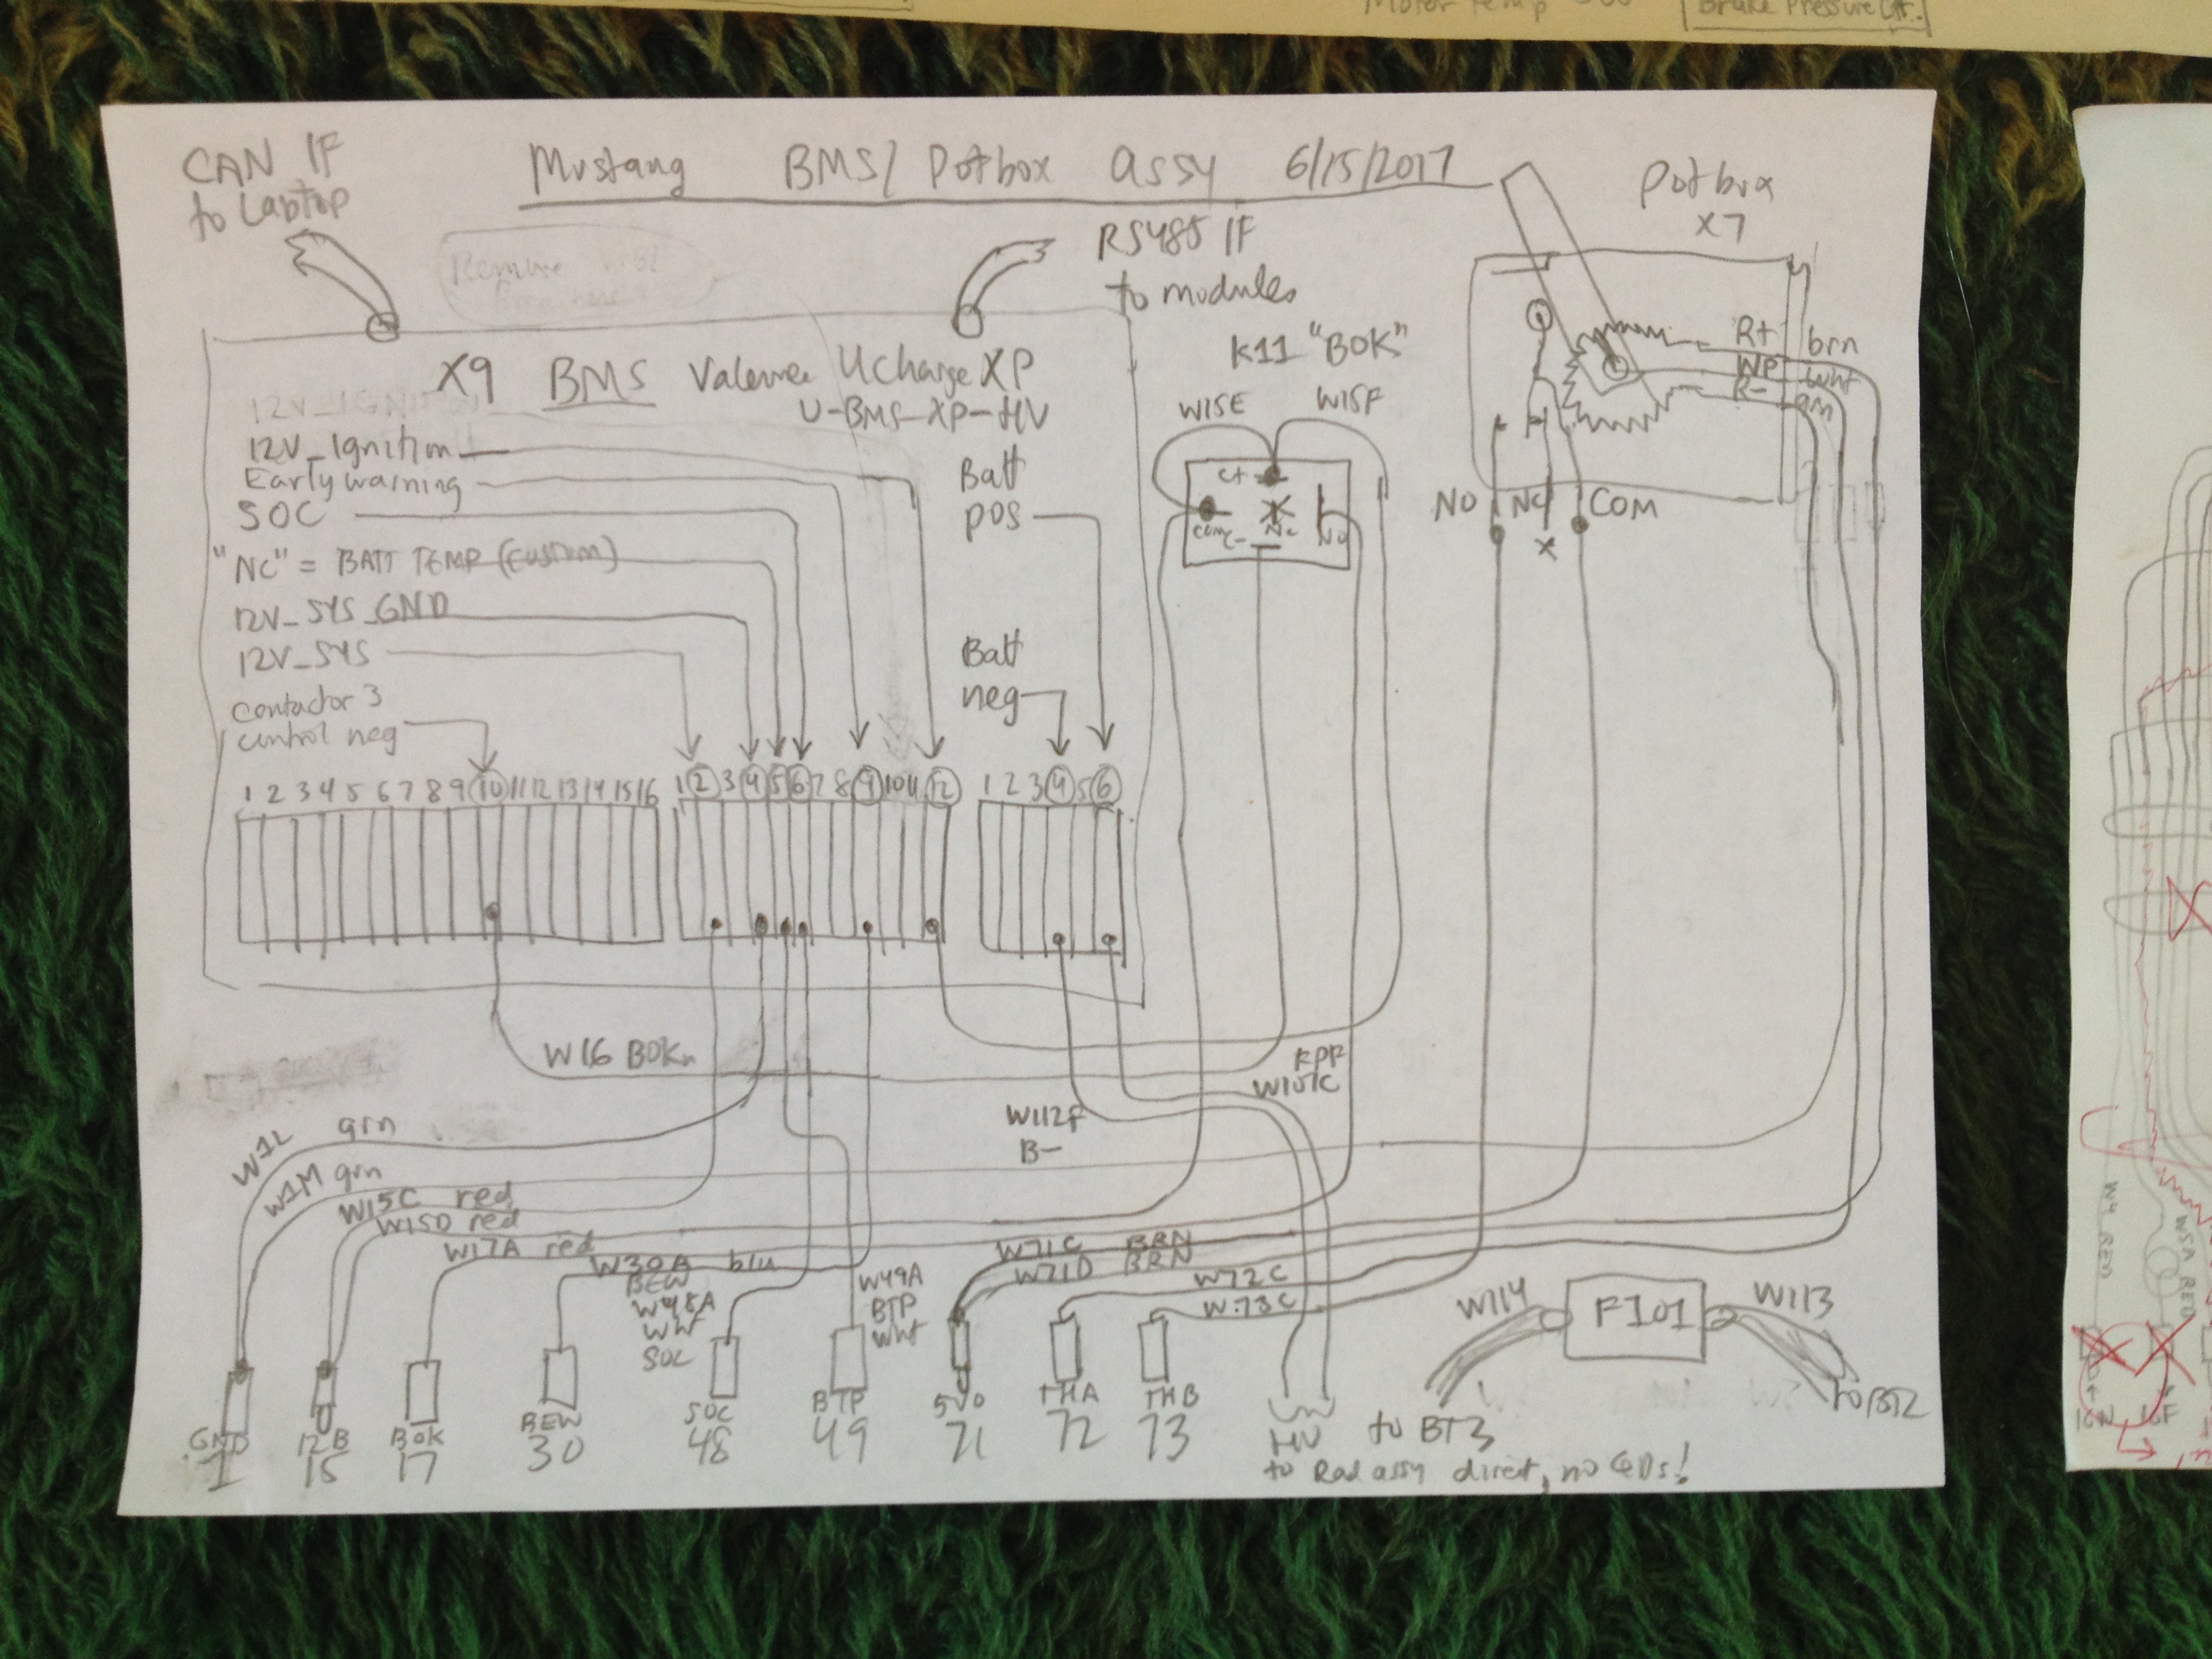 Motor Temp
Brake Pressure
CAN IF
to Laptop
Mustang BMS/Potbox Assy 6/15/2017
Potbox
X7
Remove
RS485 IF
to modules
K11 "BOK"
W15E W15F
C+
COM C- NC NO
R+ brn
WP wht
R-
NO NC COM
X
X9 BMS Valence UCharge XP
U-BMS-XP-HV
12V_IGNITION
12V_Ignition
Early warning
SOC
"NC" = BATT TEMP (custom)
12V_SYS_GND
12V_SYS
Contactor 3
control neg
Batt
pos
Batt
neg
1 2 3 4 5 6 7 8 9 10 11 12 13 14 15 16
1 2 3 4 5 6 7 8 9 10 11 12
1 2 3 4 5 6
W16 BOKn
W101C
W112F
B-
W1L grn
W1M grn
W15C red
W15D red
W17A red
W30A blu
BEW
W48A
wht
SOC
W49A
BTP
wht
W71C BRN
W71D BRN
W72C
W73C
W114 F101 W113
to BT3
to BT2
GND
1
12B
15
BOK
17
BEW
30
SOC
48
BTP
49
5V0
71
THA
72
THB
73
HV
to Rad assy direct, no QDs!
W4 RED
W5A RED